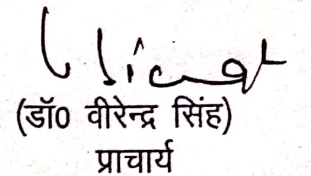 (डॉ0 वीरेन्द्र सिंह)
प्राचार्य